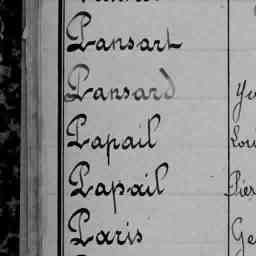 Pansart
Pansard
Papail
Papail
Paris